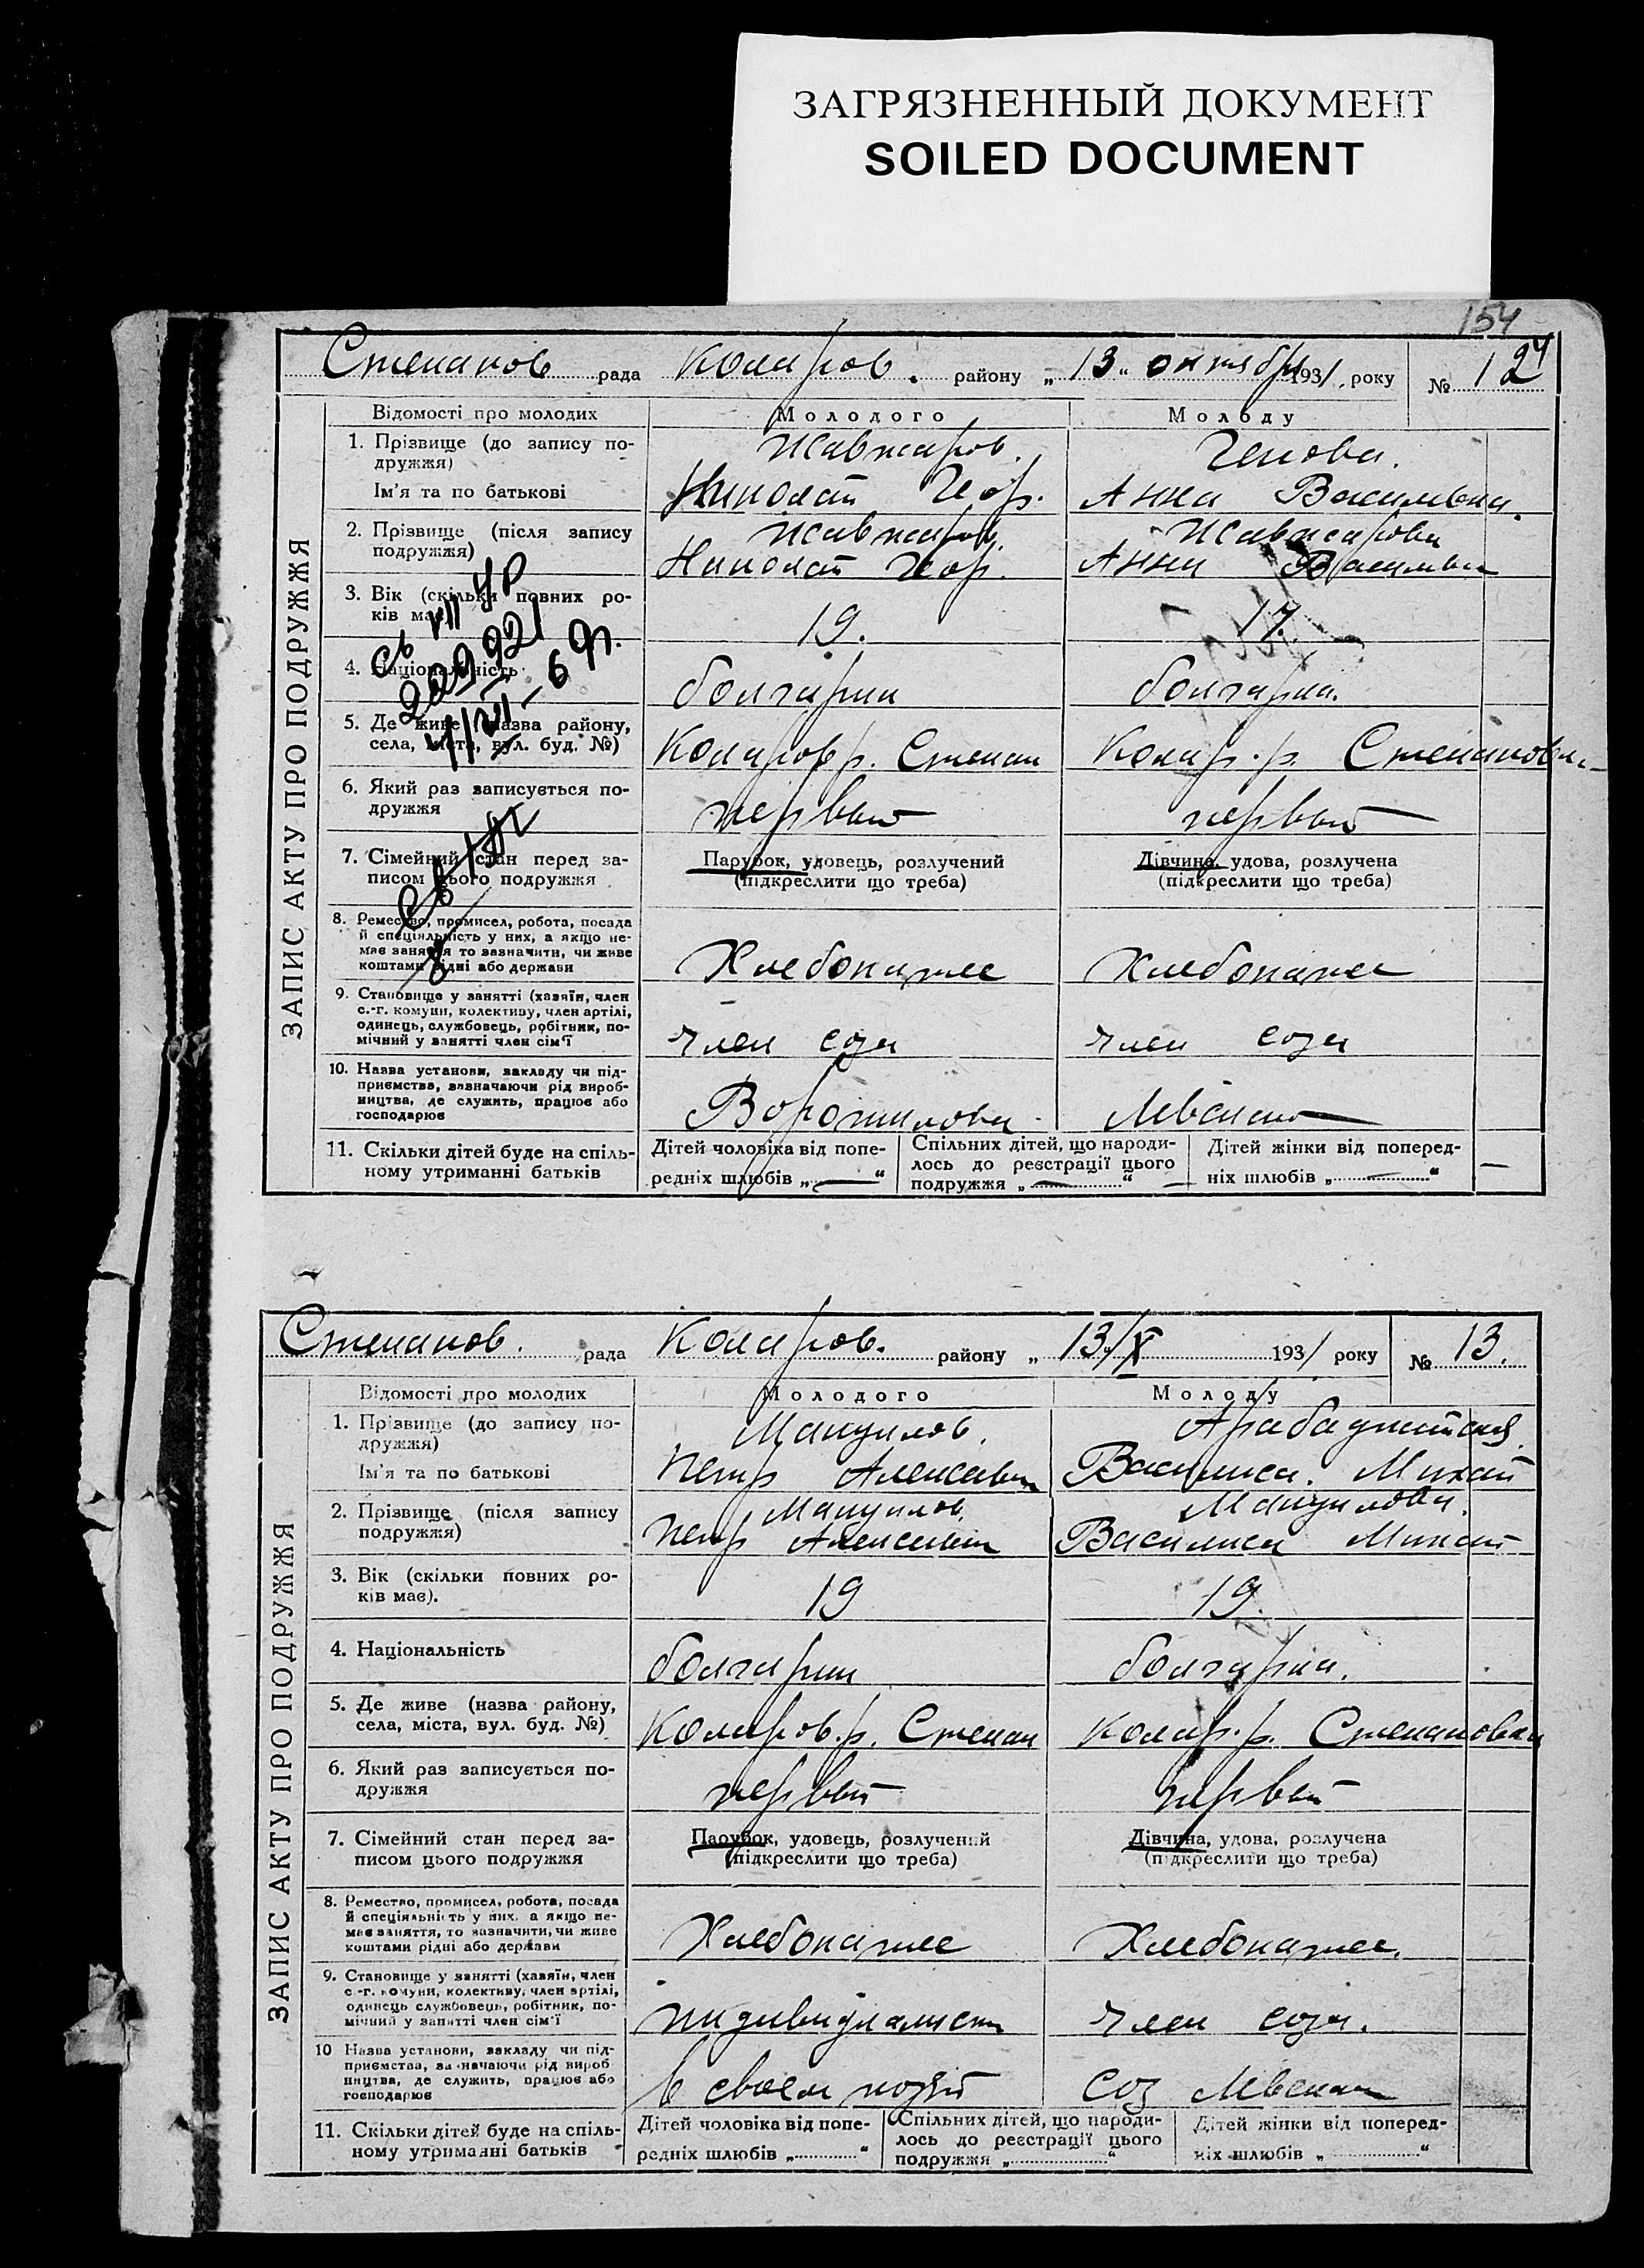 ЗАГРЯЗНЕННЫЙ ДОКУМЕНТ
SOILED DOCUMENT
154
24
Степанов рада Коларов. району „13“ октября 1931, року № 12
ЗАПИС АКТУ ПРО ПОДРУЖЖЯ
Відомості про молодих Молодого Молоду
1. Прізвище (до запису по-
дружжя) Жавжаров. Генова.
Ім'я та по батькові Николай Геор. Анна Васильевна.
2. Прізвище (після запису
подружжя) Жавжаров. Жавжарова
Николай Геор. Анна Васильевн
3. Вік (скільки повних ро-
ків має) 19. 17.
4. Національність болгарин болгарка.
5. Де живе (назва району,
села, міста, вул. буд. №) Коларов р. Степан Колар. р. Степановка
6. Який раз записується по-
дружжя первый первый
7. Сімейний стан перед за-
писом цього подружжя Парубок, удовець, розлучений
(підкреслити що треба) Дівчина, удова, розлучена
(підкреслити що треба)
8. Ремество, промисел, робота, посада
й спеціяльність у них, а якщо не-
має заняття то зазначити, чи живе
коштами рідні або держави Хлебопашес Хлебопашес
9. Становище у занятті (хазяїн, член
с.-г. комуни, колективу, член артілі,
одинець, службовець, робітник, по-
мічний у занятті член сім'ї член соза член соза
10. Назва установи, закладу чи під-
приємства, зазначаючи рід вироб-
ництва, де служить, працює або
господарює Ворошилова
11. Скільки дітей буде на спіль-
ному утриманні батьків Дітей чоловіка від попе-
редніх шлюбів „—“ Спільних дітей, що народи-
лось до реєстрації цього
подружжя „—“ Дітей жінки від поперед-
ніх шлюбів „—“
Степанов. рада Коларов. району „13/X 1931 року № 13.
ЗАПИС АКТУ ПРО ПОДРУЖЖЯ
Відомості про молодих Молодого Молоду
1. Прізвище (до запису по-
дружжя) Мануилов.
Ім'я та по батькові Петр Алексеевич Василиса. Михай
2. Прізвище (після запису
подружжя) Мануилов. Мануилова.
Петр Алексеевич Василиса Михай
3. Вік (скільки повних ро-
ків має). 19 19.
4. Національність болгарин болгарка.
5. Де живе (назва району,
села, міста, вул. буд. №) Коларов. р. Степан Колар. р. Степановка
6. Який раз записується по-
дружжя первый первый
7. Сімейний стан перед за-
писом цього подружжя Парубок, удовець, розлучений
(підкреслити що треба) Дівчина, удова, розлучена
(підкреслити що треба)
8. Ремество, промисел, робота, посада
й спеціяльність у них, а якщо не-
має заняття, то зазначити, чи живе
коштами рідні або держави Хлебопашес Хлебопашес.
9. Становище у занятті (хазяїн, член
с.-г. комуни, колективу, член артілі,
одинець службовець, робітник, по-
мічний у занятті член сім'ї индивидуалист член соза.
10 Назва установи, закладу чи під-
приємства, зазначаючи рід вироб
ництва, де служить, працює або
господарює в своем хозяй Соз
11. Скільки дітей буде на спіль-
ному утриманні батьків Дітей чоловіка від попе-
редніх шлюбів „“ Спільних дітей, що народи-
лось до реєстрації цього
подружжя „“ Дітей жінки від поперед-
ніх шлюбів „“